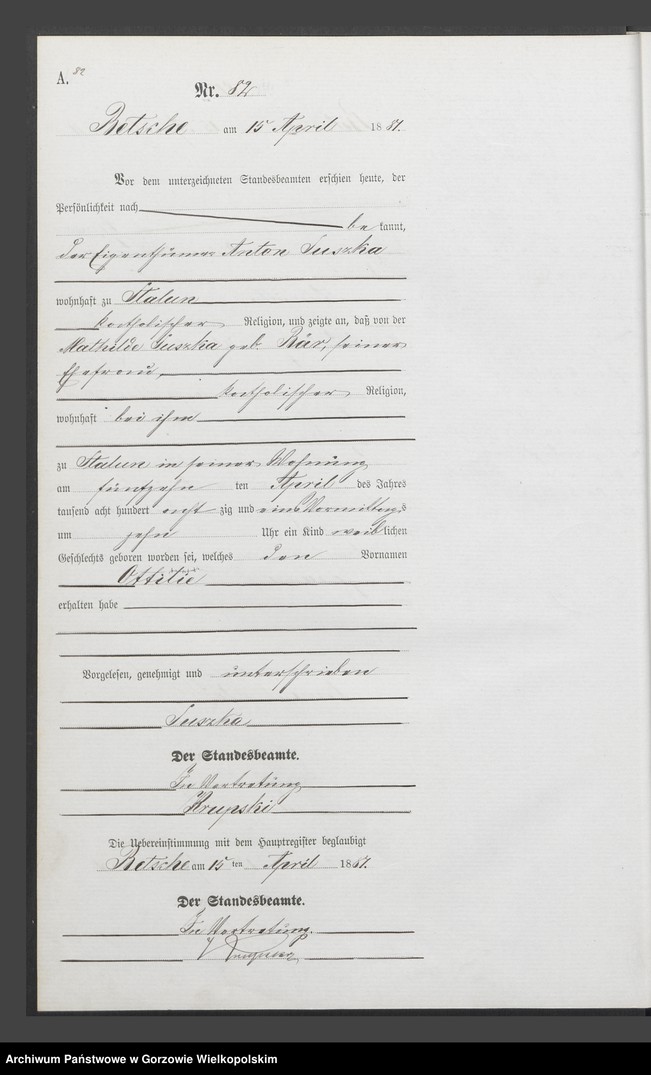 A. 82
Nr. 82
Betsche am 15 April 1881.
Vor dem unterzeichneten Standesbeamten erschien heute, der
Persönlichkeit nach
be kannt,
der Eigenthümer Anton Suszka
wohnhaft zu Stalun
katholischer Religion, und zeigte an, daß von der
Mathilde Suszka geb. Bär, seiner
Ehefrau,
katholischer Religion,
wohnhaft bei ihm
zu Stalun in seiner Wohnung
am fünfzehn ten April des Jahres
tausend acht hundert acht zig und eins Vormittags
um zehn Uhr ein Kind weiblichen
Geschlechts geboren worden sei, welches den Vornamen
Ottilie
erhalten habe
Vorgelesen, genehmigt und unterschrieben
Suszka
Der Standesbeamte.
In Vertretung
Krupski
Die Uebereinstimmung mit dem Hauptregister beglaubigt
Betsche am 15 ten April 1881.
Der Standesbeamte.
In Vertretung.
Archiwum Państwowe w Gorzowie Wielkopolskim